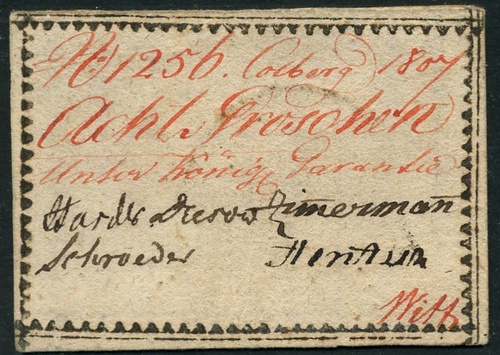 No 1256. Colberg 1807
Acht Groschen
Unter Königl. Garantie
Harder Dresow Zimmerman
Schroeder Hentsch
Witte